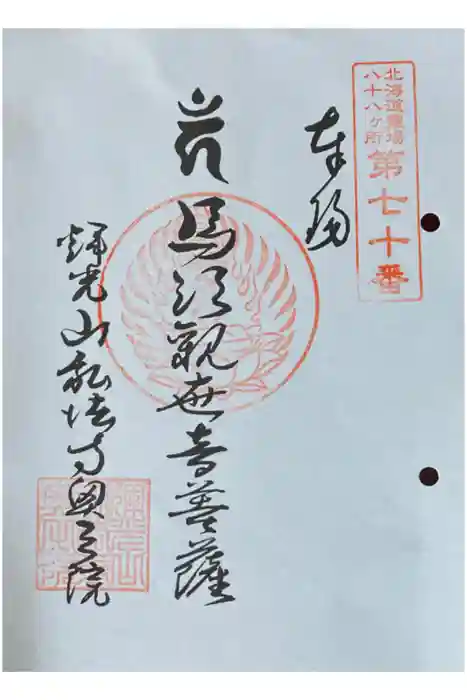 北海道霊場
八十八ヶ所
第七十番
奉拝
馬頭觀世音菩薩
輝光山弘法寺奥之院